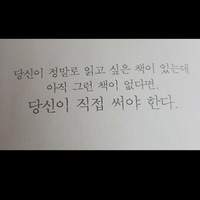 당신이 정말로 읽고 싶은 책이 있는데
아직 그런 책이 없다면,
당신이 직접 써야 한다.